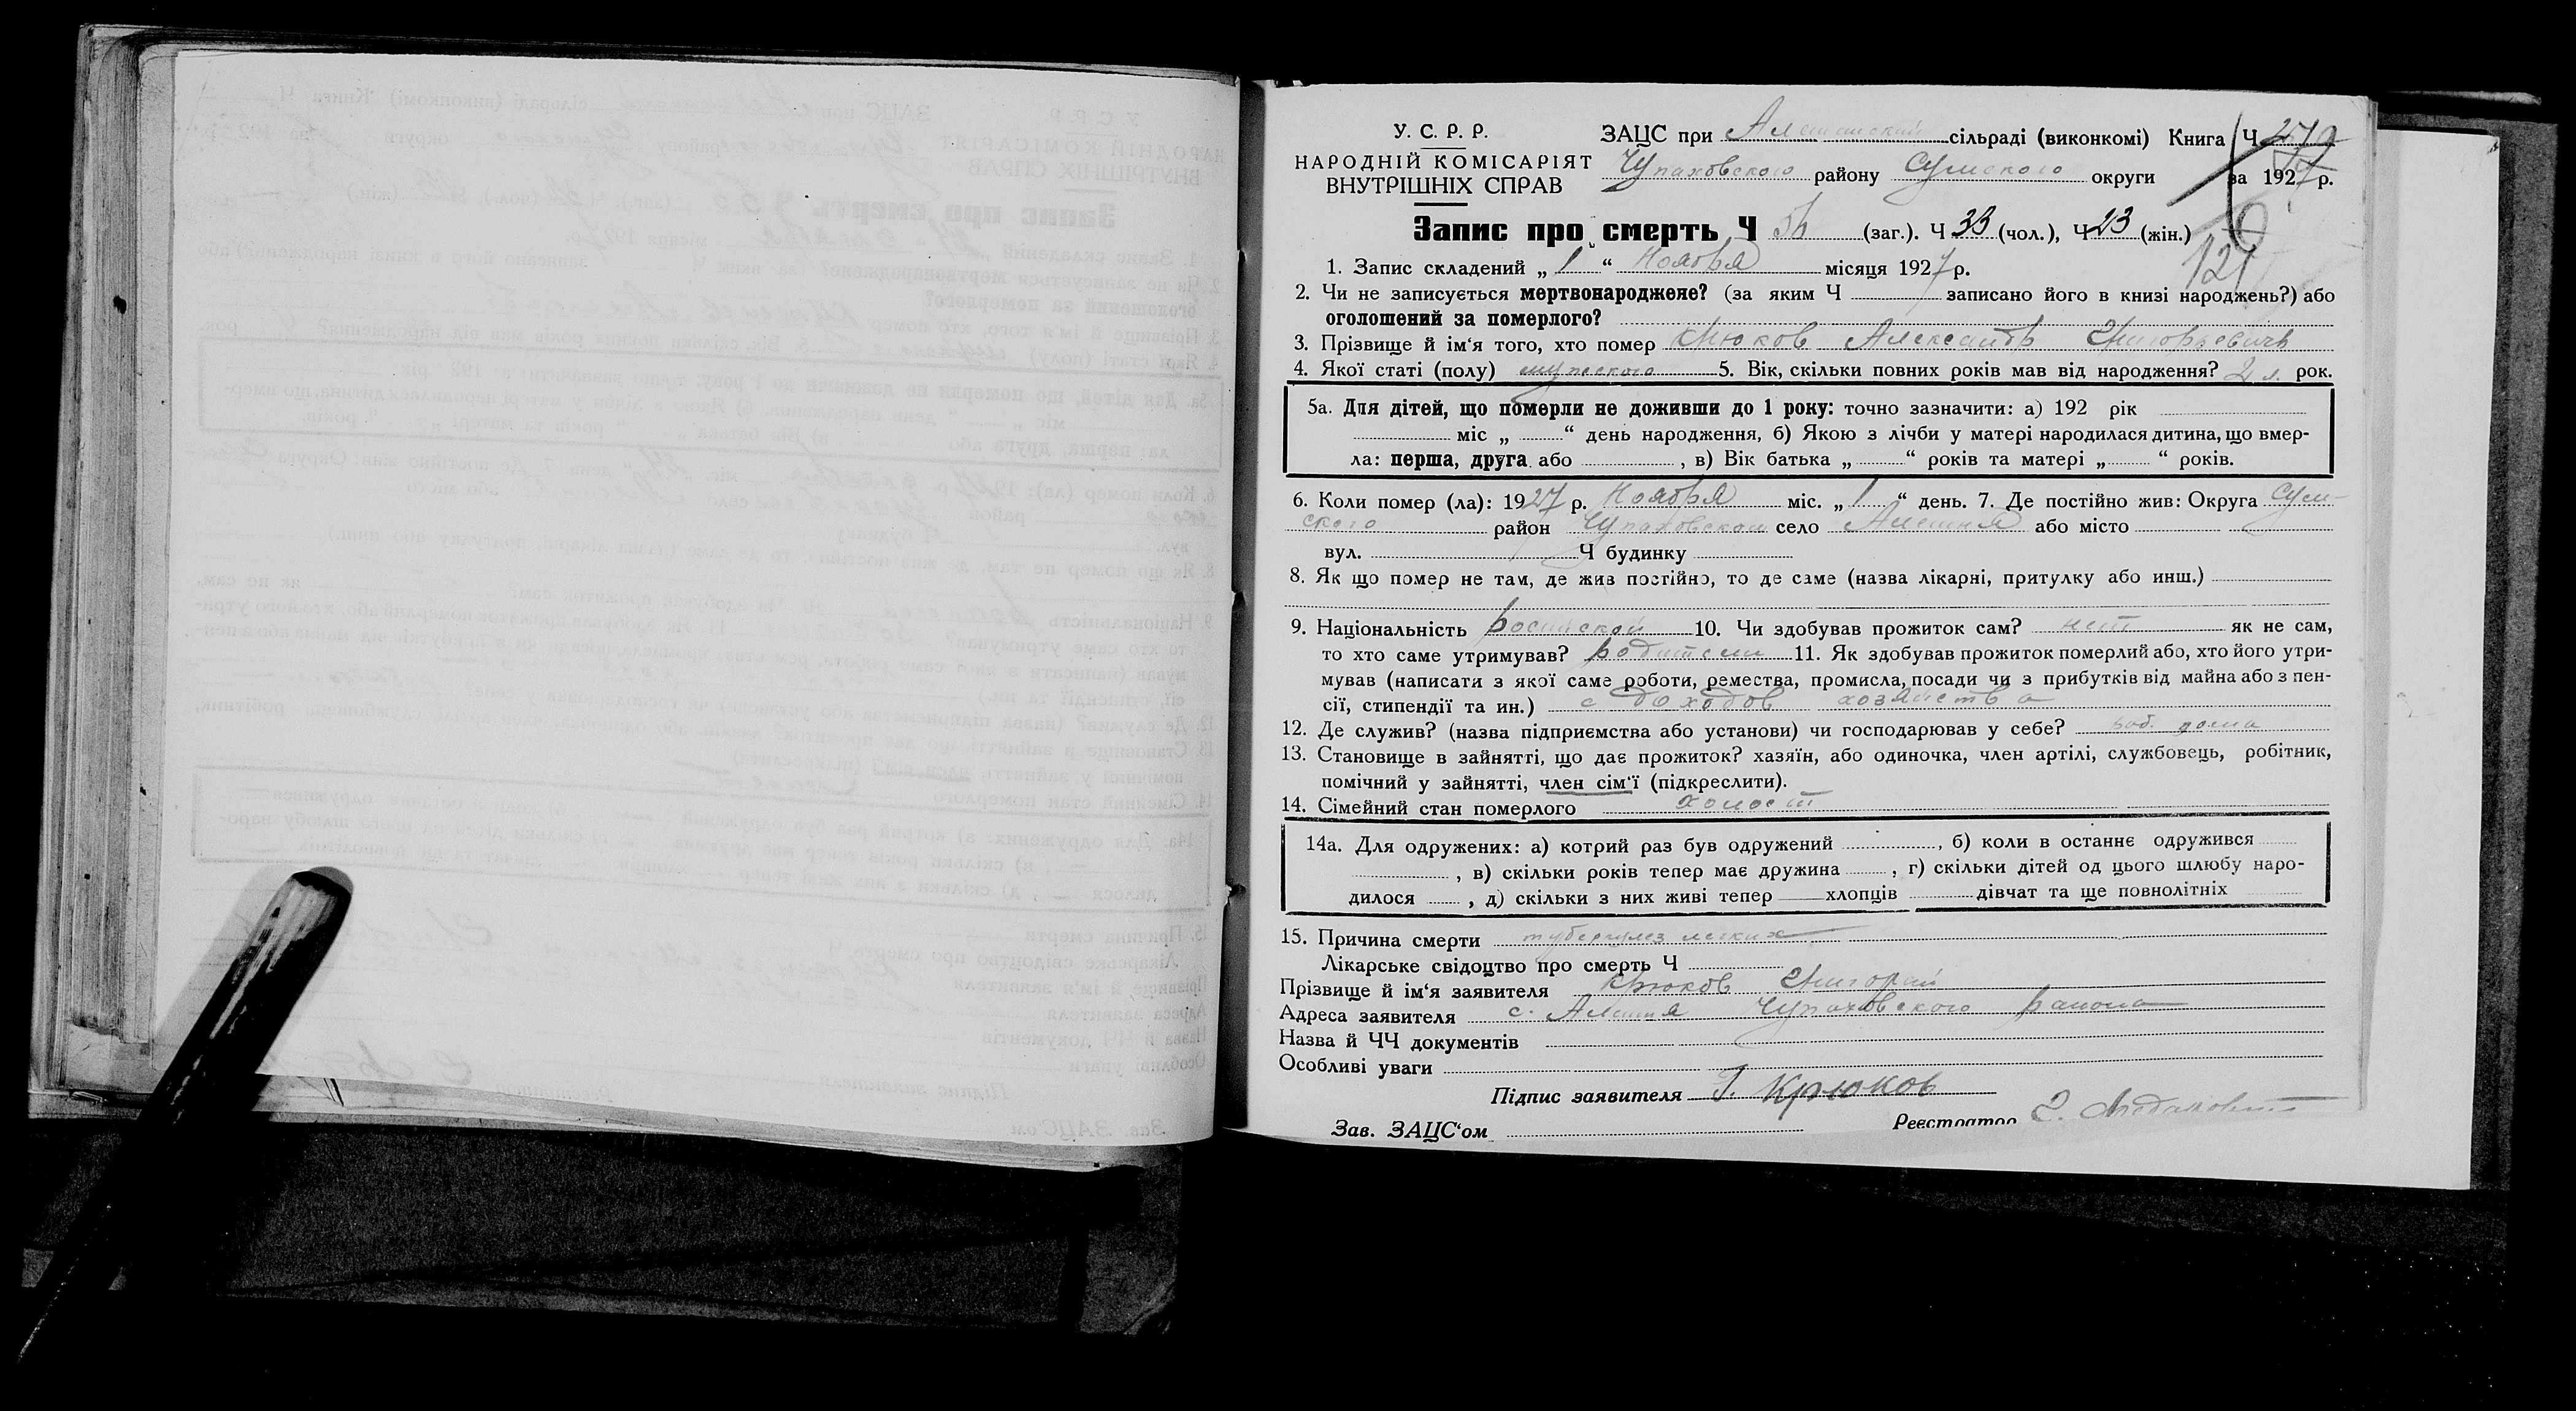 У. С. Р. Р.
НАРОДНІЙ КОМІСАРІЯТ
ВНУТРІШНІХ СПРАВ
ЗАЦС при сільраді (виконкомі) Книга Ч
Чупаховского району Сумского округи за 1927 р.
Запис про смерть Ч 56 (заг.). Ч 33 (чол.), Ч 23 (жін.)
121
1. Запис складений „ 1 “ Ноября місяця 1927 р.
2. Чи не записується мертвонароджене? (за яким Ч записано його в книзі народжень?) або
оголошений за померлого?
3. Прізвище й ім'я того, хто помер Крюков Александр Григорьевичь
4. Якої статі (полу) мужского 5. Вік, скільки повних років мав від народження? 2 л. рок.
5а. Для дітей, що померли не доживши до 1 року: точно зазначити: а) 192 рік
міс „ “ день народження, б) Якою з лічби у матері народилася дитина, що вмер-
ла: перша, друга або , в) Вік батька „ “ років та матері „ “ років.
6. Коли помер (ла): 1927 р. Ноября міс. „ 1 “ день. 7. Де постійно жив: Округа Сум-
ского район Чупаховском село Алешня або місто
вул. Ч будинку
8. Як що помер не там, де жив постійно, то де саме (назва лікарні, притулку або инш.)
9. Національність 10. Чи здобував прожиток сам? нет як не сам,
то хто саме утримував? родители 11. Як здобував прожиток померлий або, хто його утри-
мував (написати з якої саме роботи, ремества, промисла, посади чи з прибутків від майна або з пен-
сії, стипендії та ин.) с доходов хозяйства
12. Де служив? (назва підприємства або установи) чи господарював у себе? раб. дома
13. Становище в зайнятті, що дає прожиток? хазяїн, або одиночка, член артілі, службовець, робітник,
помічний у зайнятті, член сім'ї (підкреслити).
14. Сімейний стан померлого холост
14а. Для одружених: а) котрий раз був одружений , б) коли в останнє одружився
, в) скільки років тепер має дружина , г) скільки дітей од цього шлюбу наро-
дилося , д) скільки з них живі тепер хлопців дівчат та ще повнолітніх
15. Причина смерти туберкулез легких
Лікарське свідоцтво про смерть Ч
Прізвище й ім'я заявителя Крюков Григорий
Адреса заявителя с. Алешня Чупаховского района
Назва й ЧЧ документів
Особливі уваги
Підпис заявителя Г. Крюков
Зав. ЗАЦС'ом Реєстратор